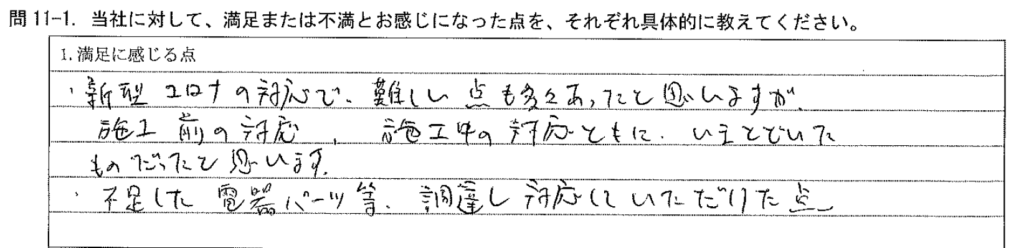 問11-1. 当社に対して、満足または不満とお感じになった点を、それぞれ具体的に教えてください。
1.満足に感じる点
・新型コロナの対応で、難しい点も多々あったと思いますが、
施工前の対応、施工中の対応ともに、いきとどいた
ものだったと思います。
・不足した電器パーツ等、調達し対応していただけた点